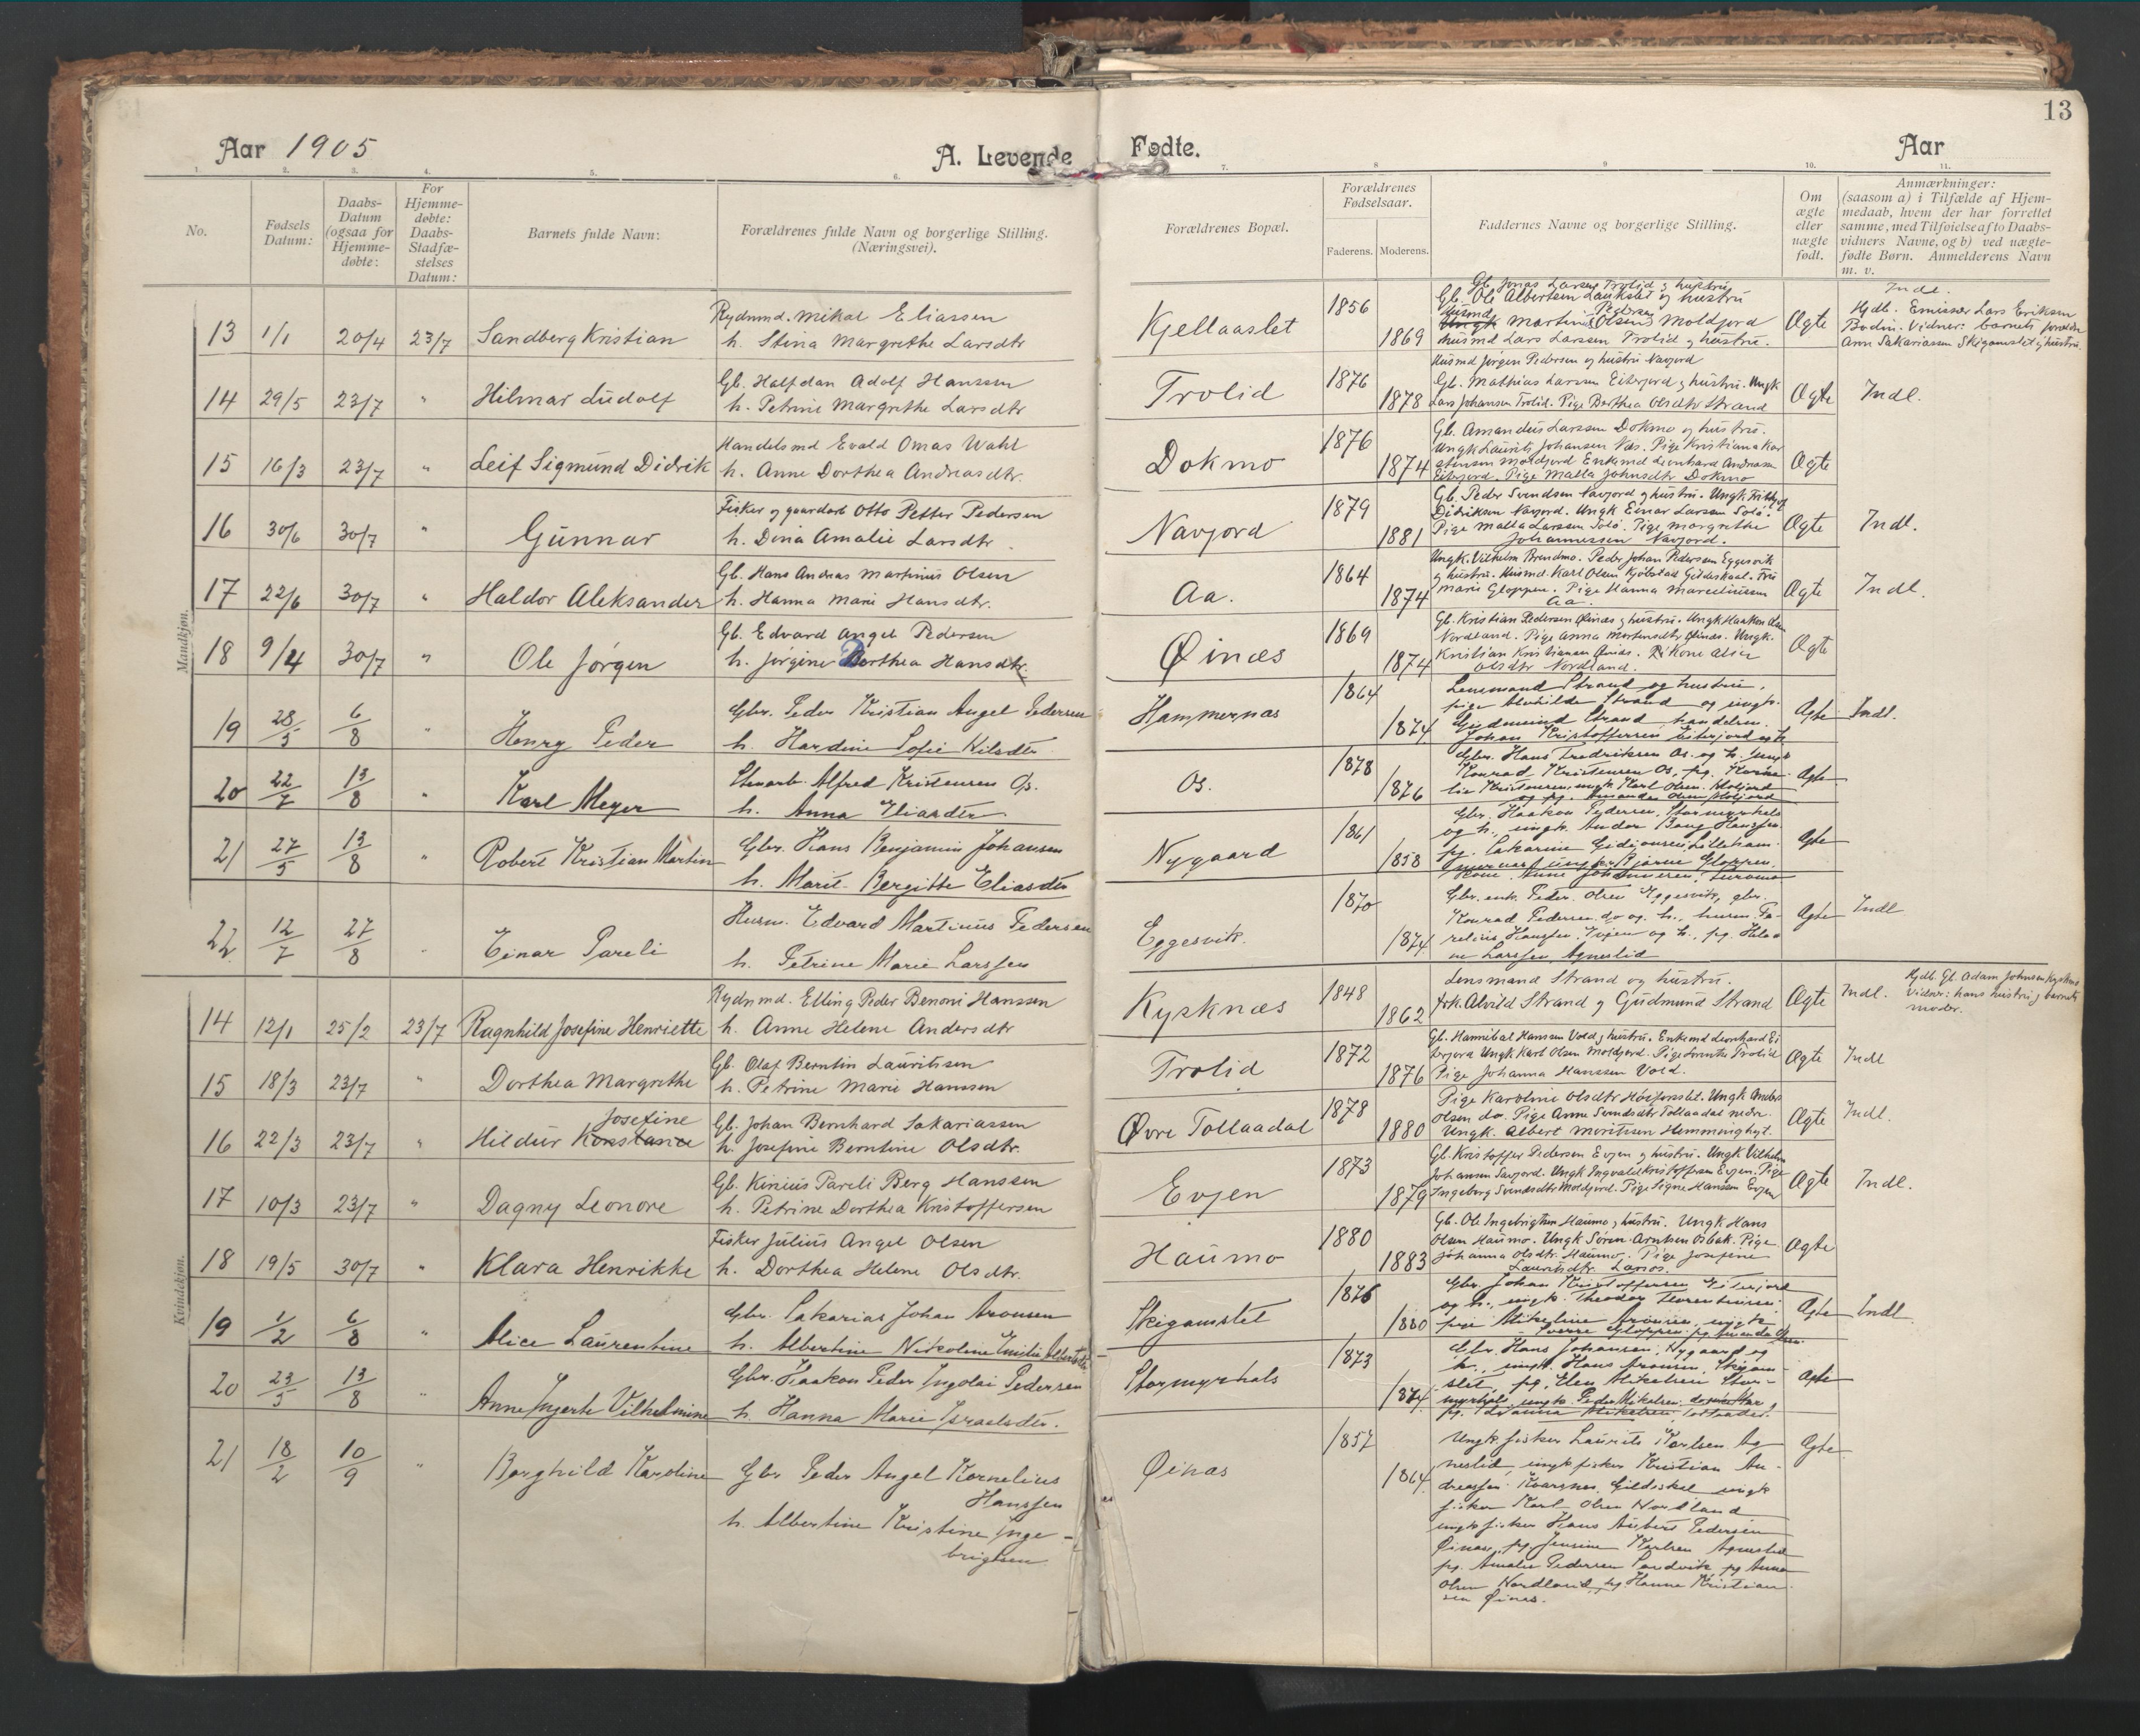 13
Aar 1905
A. Levende Fødte.
Aar
1. 2. 3. 4. 5. 6. 7. 8 9 10. 11.
No.
Fødsels Datum:
Daabs-Datum (ogsaa for Hjemmedøbte:
For Hjemmedøbte: Daabs-Stadfæstelses Datum:
Barnets fulde Navn:
Forældrenes fulde Navn og borgerlige Stilling. (Næringsvei).
Forældrenes Bopæl.
Forældrenes Fødselsaar.
Faderens. Moderens.
Faddernes Navne og borgerlige Stilling.
Om ægte eller uægte født.
Anmærkninger: (saasom a) i Tilfælde af Hjemmedaab, hvem der har forrettet samme, med Tilføielse af to Daabsvidners Navne, og b) ved uægtefødte Børn. Anmelderens Navn m. v.
Mandkjøn.
13 1/1 20/4 23/7 Sandberg Kristian
Rydnmd. Mikal Eliassen
h. Stina Margrethe Larsdtr
Kjellaaslet 1856 1869
Gb. Jonas Larsen Trolid og hustru
Gb. Ole Albertsen Laukslet og hustru
Husmd Martinus Pedersen Moldjord
husmd Lars Larsen Trolid og hustru.
Ægte
Indl.
Hjdb. Emissær Lars Eriksen
Bodin. Vidner: barnets forældre
Arn Sakariassen Skigamslet og hustru.
14 29/5 23/7 " Hilmar Ludolf
Gb. Halfdan Adolf Hanssen
h. Petrine Margrethe Larsdtr
Trolid 1876 1878
Husmd Jørgen Pedersen og hustru Navjord
Gb. Mathias Larssen Eiterjord og hustru. Ungk
Lars Johansen Trolid. Pige Berthea Olsdtr Strand
Ægte Indl.
15 16/3 23/7 " Leif Sigmund Didrik
Handelsmd Evald Omas Wahl
h. Anne Dorthea Andreasdtr.
Dokmo 1876 1874
Gb. Amandus Larssen Dokmo og hustru.
Ungk Laurits Johansen Næs. Pige Kristiana Kar
stensen Moldjord Enkemd Leonhard Andreassen
Eiterjord. Pige Malla Johnsdtr Dokmo
Ægte
16 30/6 30/7 " Gunnar
Fisker og gaardarb Otto Petter Pedersen
h. Dina Amalie Larsdtr.
Navjord 1879 1881
Gb. Peder Svendsen Navjord og hustru. Ungk
Didriksen Navjord. Ungk Einar Larssen Solø.
Pige Malla Larssen Solø. Pige Margrethe
Johannessen Navjord.
Ægte Indl.
17 22/6 30/7 " Haldor Aleksander
Gb. Hans Andreas Martinus Olsen
h. Hanna Marie Hansdtr.
Aa. 1864 1874
Ungk. Vilhelm Brendmo. Peder Johan Pedersen Eggesvik
og hustru. Husmd. Karl Olsen Kjøbstad Gildeskaal. Fru
Marie Gloppen. Pige Hanna Marceliussen
Aa.
Ægte Indl.
18 9/4 30/7 " Ole Jørgen
Gb. Edvard Angel Pedersen
h. Jørgine Dorthea Hansdtr.
Øinæs 1869 1874
Gb. Kristian Pedersen Øinæs og hustru. Ungk Haakon Olsen
Nordland. Pige Anna Mortensdtr Øinæs. Ungk.
Kristian Kristiansen Øinæs. Kone
Olsdtr Nordland.
Ægte
19 28/5 6/8 " Henry Peder
Gbr. Peder Kristian Angel Pedersen
h. Hardine Sofie Nilsdtr
Hammernæs 1864 1874
Lensmand Strand og hustru,
pige Alvhilde Strand og ungk.
Gudmund Strand, handelsm.
Johan Kristoffersen Eiterjord og h.
Ægte Indl.
20 22/7 13/8 " Karl Meyer
Stenarb. Alfred Kristensen Os.
h. Anna Eliasdtr
Os. 1878 1876
Gbr. Hans Fredriksen Os. og h. ungk
Konrad Kristensen Os, pg.
Kristensen, ungk. Karl Olsen Moljord
og pg. Amanda Olsen Moljord
Ægte
21 27/5 13/8 " Robert Kristian Martin
Gbr. Hans Benjamin Johansen
h. Marie Bergitte Eliasdtr
Nygaard 1861 1858
Gbr. Haakon Pedersen, Stormyrhals
og h., ungk. Andor Berg Hanssen
pg. Sakarine
ungk. Bjarne Gloppen.
Kone Anne Johannesen,
Ægte
22 12/7 27/8 " Einar Pareli
Husm. Edvard Martinus Pedersen
h. Petrine Marie Larssen
Eggesvik. 1870 1874
Gbr. enk. Peder Olsen Eggesvik, gbr.
Konrad Pedersen do og h., husm. Pa-
relius Hanssen, Evjen og h., pg.
Larssen Agneslid
Ægte Indl
Kvindekjøn.
14 12/1 25/2 23/7 Ragnhild Josefine Henriette
Rydnmd. Elling Peder Benoni Hanssen
h. Anne Helene Andersdtr
Kysknæs 1848 1862
Lensmand Strand og hustru.
Frk. Alvild Strand og Gudmund Strand
Ægte Indl.
Hjdb. Gb. Adam Johnsen Kysknæs
Vidner: hans hustru og barnets
moder.
15 18/3 23/7 " Dorthea Margrethe
Gb. Olaf Berntin Lauritssen
h. Petrine Marie Hanssen
Trolid 1872 1876
Gb. Hannibal Hanssen Vold og hustru. Enkemd Leonhard Ei
terjord Ungk Karl Olsen Moldjord. Pige Trolid
Pige Johanna Hanssen Vold.
Ægte Indl
16 22/3 23/7 " Hildur Konstance Josefine
Gb. Johan Bernhard Sakariassen
h. Josefine Berntine Olsdtr.
Øvre Tollaadal 1878 1880
Pige Karoline Olsdtr Høiforslet. Ungk Anders
Olsen do. Pige Anne Svendsdtr Tollaadal nedre.
Ungk. Albert Moritssen Hemminghyt.
Ægte Indl.
17 10/3 23/7 " Dagny Leonore
Gb. Kinius Pareli Berg Hanssen
h. Petrine Dorthea Kristoffersen
Evjen 1873 1879
Gb. Kristoffer Pedersen Evjen og hustru. Ungk Vilhelm
Johansen Savjord. Ungk Ingvald Kristoffersen Evjen. Pige
Ingeborg Svendsdtr Moldjord. Pige Signe Hanssen Evjen
Ægte Indl.
18 19/5 30/7 " Klara Henrikke
Fisker Julius Angel Olsen
h. Dorthea Helene Olsdtr.
Haumo 1880 1883
Gb. Ole Ingebrigtsen Haumo og hustru. Ungk Hans
Olsen Haumo. Ungk Søren Arntsen Osbak. Pige
Johanna Olsdtr. Haumo. Pige Josefine
Lauritsdtr. Larsos.
Ægte
19 1/2 6/8 " Alice Laurentine
Gbr. Sakarias Johan Aronsen
h. Albertine Nikoline Emilie Albertsdtr
Skigamslet 1876 1880
Gbr. Johan Kristoffersen Eiterjord
og h., ungk. Theodor Florentinsen,
pige Mikeline Aronsen, ungk
Sverre Gloppen, pg. Amanda Olsen
Ægte Indl
20 23/5 13/8 " Anne Ingerte Vilhelmine
Gbr. Haakon Peder Ingolai Pedersen
h. Hanna Marie Israelsdtr.
Stormyrhals 1873 1874
Gbr. Hans Johansen, Nygaard og
h., ungk. Hans Aronsen, Skigam-
slet, pg. Elen Mikelsen Stor-
myrhals, ungk. Peder Mikelsen
pg. Mikelsen, Tollaadal.
Ægte
21 18/2 10/9 " Borghild Karoline
Gbr Peder Angel Kornelius
Hanssen
h. Albertine Kristine Inge-
brigtsen
Øinæs 1857 1864
Ungk. fisker Laurits Karlsen Ag
neslid, ungk fisker Kristian An-
dreassen Kvarsnes, Gildeskal ungk
fisker Karl Olsen Nordland
ungk fisker Hans Aubert Pedersen
Øinæs, pg. Jensine Karlsen Agneslid
pg. Amalie Pedersen Sandvik, pg Anna
Olsen Nordland, pg. Hanna Kristian
sen Øines.
Ægte